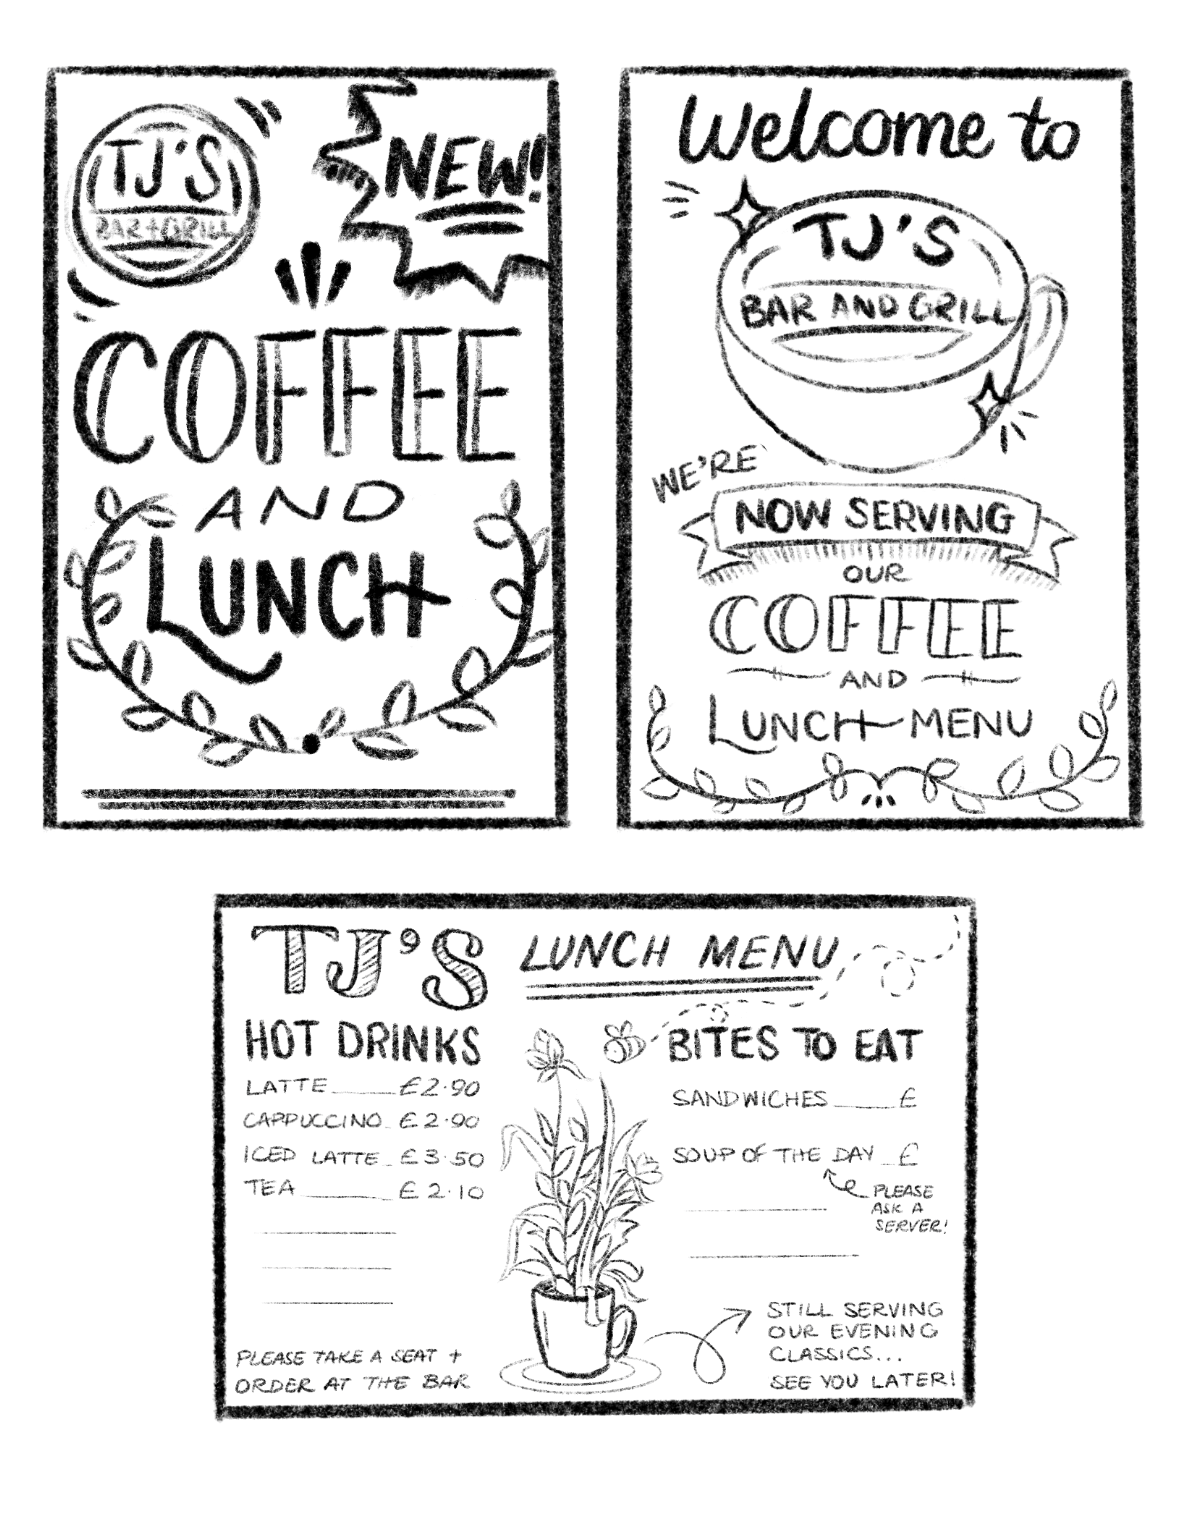 TJ'S
BAR + GRILL
NEW!
COFFEE
AND
LUNCH
Welcome to
TJ'S
BAR AND GRILL
WE'RE
NOW SERVING
OUR
COFFEE
AND
LUNCH MENU
TJ'S LUNCH MENU
HOT DRINKS
LATTE ____ £2.90
CAPPUCCINO £2.90
ICED LATTE £3.50
TEA ____ £2.10
PLEASE TAKE A SEAT +
ORDER AT THE BAR
BITES TO EAT
SANDWICHES ____ £
SOUP OF THE DAY _ £
PLEASE
ASK A
SERVER!
STILL SERVING
OUR EVENING
CLASSICS...
SEE YOU LATER!